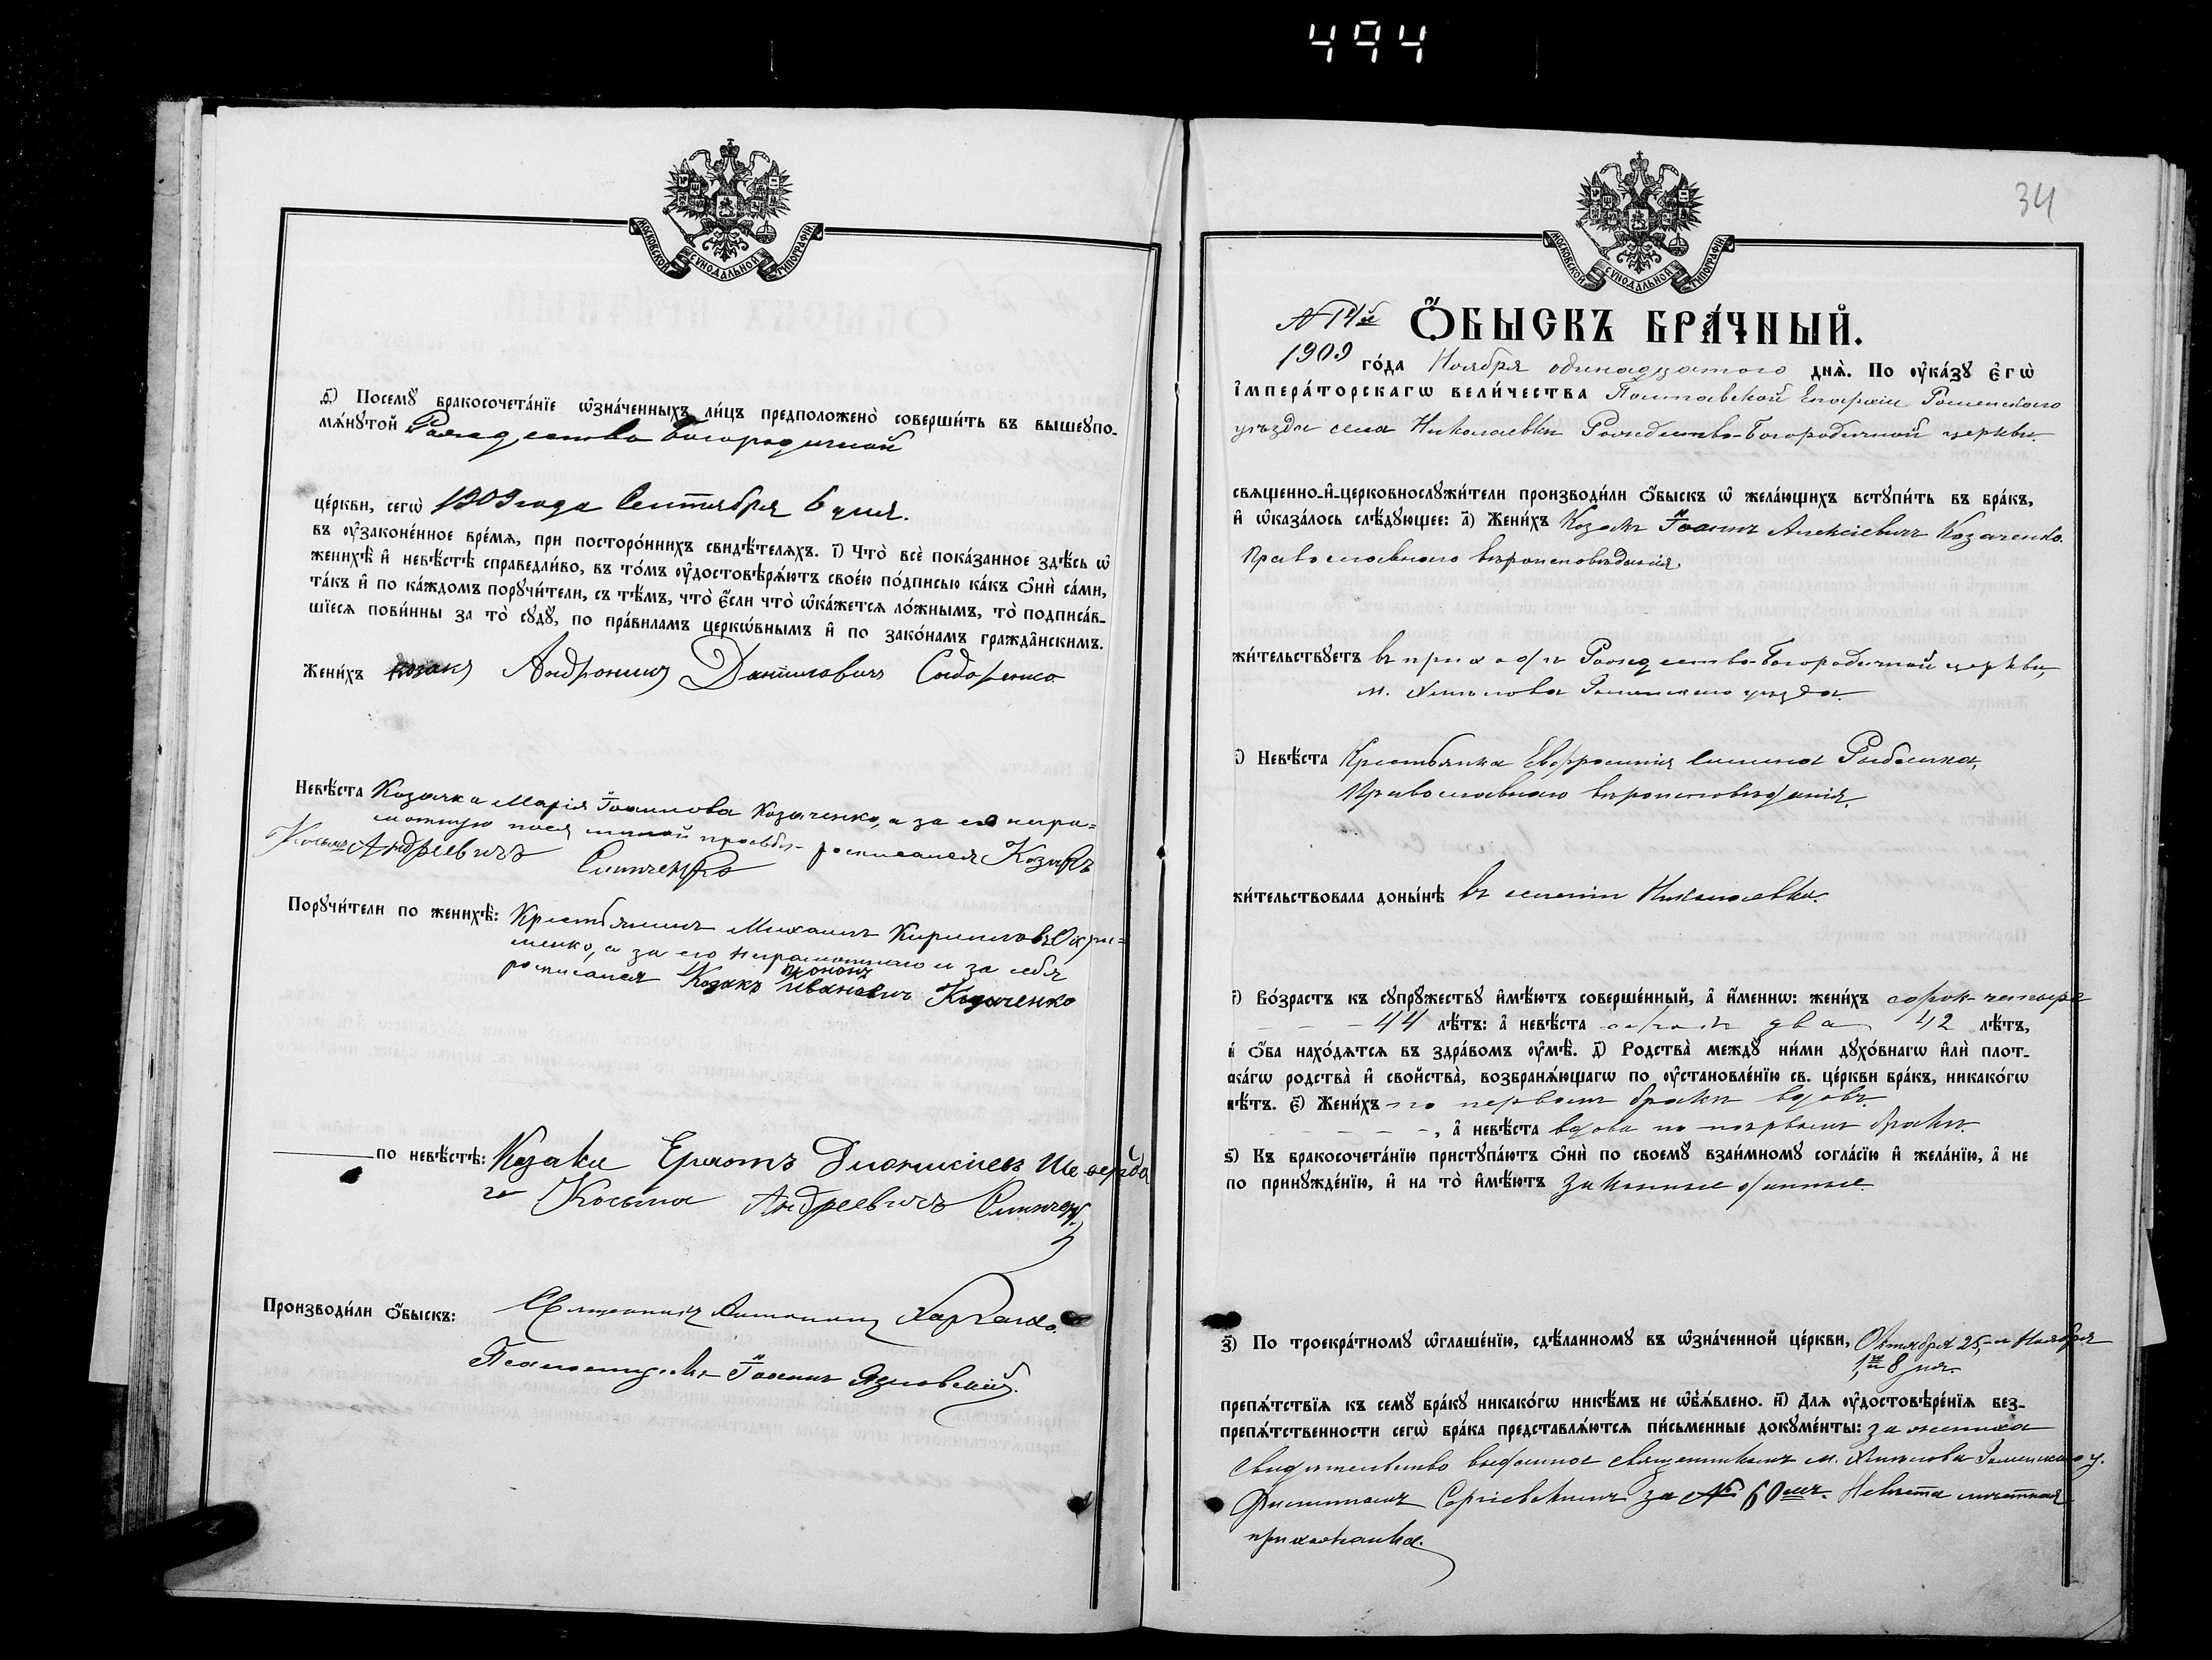 494
МОСКОВСКОЙ СѴНОДАЛЬНОЙ ТИПОГРАФІИ
д҃) Посемꙋ бракосочета́нїе ѡ҆зна́ченныхъ ли́цъ предположено̀ соверши́ть въ вышеꙋпо-
мѧ́нꙋтой Рождество Богородичной
це́ркви, сегѡ̀ 1909 года Сентября 6 дня.
въ ᲂу҆зако́ненное вре́мѧ, при посторо́ннихъ свидѣ́телѧхъ. і҃) Что̀ всѐ пока́занное здѣ́сь ѡ҆
женихѣ̀ и҆ невѣ́стѣ справедли́во, въ то́мъ ᲂу҆достовѣрѧ́ютъ свое́ю по́дписью ка́къ ѻ҆нѝ са́ми,
та́къ и҆ по ка́ждомъ порꙋчи́тели, съ тѣ́мъ, что̀ є҆́сли что̀ ѡ҆ка́жетсѧ ло́жнымъ, то̀ подписа́в-
шїесѧ пови́нны за то̀ сꙋдꙋ̀, по пра́виламъ церкѡ́внымъ и҆ по зако́намъ гражда̑нскимъ.
Жени́хъ козакъ Андроникъ Даниловичъ Сидоренко
Невѣ́ста Козачка Марія Іоаннова Козаченко, а за ея негра=
мотную по ея личной просьбѣ росписался Козакъ
Косьма Андреевичъ
Порꙋчи́тели по женихѣ̀: Крестьянинъ Михаилъ Кирилловъ Охри=
менко, а за его неграмотнаго и за себя
росписался Козакъ Иванович Козаченко
по невѣ́стѣ: Козаки Ермолъ Дионисіевъ
и Косьма Андреевичъ
Производи́ли ѻ҆́быскъ: Священникъ Харченко.
Псаломщикъ Іоаннъ Язловскій.
34
МОСКОВСКОЙ СѴНОДАЛЬНОЙ ТИПОГРАФІИ
№ 14й Ѻ҆́БЫСКЪ БРА́ЧНЫЙ.
1909 го́да Ноября одинадцатого днѧ̀. По ᲂу҆ка́зꙋ є҆гѡ̀
і҆мпера́торскагѡ вели́чества Полтавской Епархіи Роменского
уѣзда села Николаевки Рождество-Богородичной церкви
свѧщенно-и҆-церковнослꙋжи́тели производи́ли ѻ҆́быскъ ѡ҆ жела́ющихъ встꙋпи́ть въ бра́къ,
и҆ ѡ҆каза́лось слѣ́дꙋющее: а҃) Жени́хъ Козакъ Іоаннъ Алексіевичъ Козаченко.
Православнаго вѣроисповѣданія.
жи́тельствꙋетъ въ приходѣ Рождество-Богородичной церкви,
м. Хмѣлова Роменского уѣзда.
Невѣ́ста Крестьянка Евфросинія Рибалка,
Православнаго вѣроисповѣданія.
жи́тельствовала доны́нѣ въ селеніи Николаевки.
г҃) Во́зрастъ къ сꙋпрꙋ́жествꙋ и҆мѣ́ютъ соверше́нный, а҆ и҆́меннѡ: жени́хъ сорок четыре
44 лѣ́тъ: а҆ невѣ́ста сорокъ два 42 лѣ́тъ,
и҆ ѻ҆́ба нахо́дѧтсѧ въ здра́вомъ ᲂу҆мѣ̀. д҃) Родства̀ междꙋ̀ ни́ми дꙋхо́внагѡ и҆лѝ плот-
ска́гѡ родства̀ и҆ свойства̀, возбранѧ́ющагѡ по ᲂу҆становле́нїю св. це́ркви бра́къ, никако́гѡ
нѣ́тъ. є҃) Жени́хъ по первомъ бракѣ вдовъ.
, а҆ невѣ́ста вдова по первомъ бракѣ.
ѕ҃) Къ бракосочета́нїю пристꙋпа́ютъ ѻ҆нѝ по своемꙋ̀ взаи́мномꙋ согла́сїю и҆ жела́нїю, а҆ не
по принꙋжде́нїю, и҆ на то̀ и҆мѣ́ютъ законные данные.
з҃) По троекра́тномꙋ ѡ҆глаше́нїю, сдѣ́ланномꙋ въ ѡ҆зна́ченной це́ркви, Октября 25, и Ноября
1, и 8 дня.
препѧ́тствїѧ къ семꙋ̀ бра́кꙋ никако́гѡ никѣ́мъ не ѡ҆б̾ѧ́влено. и҃) Длѧ ᲂу҆достовѣре́нїѧ без-
препѧ́тственности сегѡ̀ бра́ка представлѧ́ютсѧ пи́сьменные докꙋме́нты: за жениха
Свидѣтельство выданное священникомъ м. Хмѣлова Роменского у.
Сергіевскимъ за № 60мъ. Невѣста мѣстная
прихожанка.